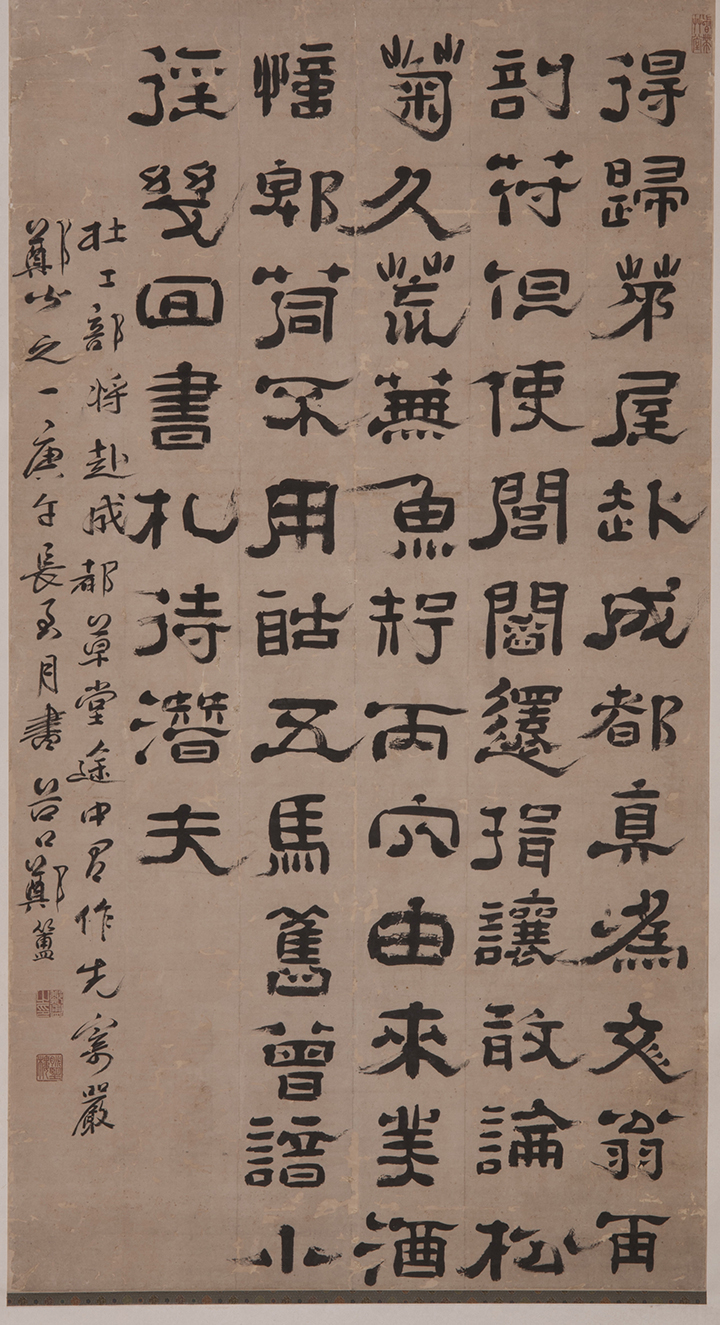 得歸茅屋赴成都真為文翁再
剖符但使閭閻還揖讓敢論松
菊久荒蕪魚知丙穴由來美酒
憶郫筒不用酤五馬舊曾諳小
徑幾回書札待潛夫
杜工部将赴成都草堂途中有作先寄嚴
鄭公之一庚午長至月書谷口鄭簠